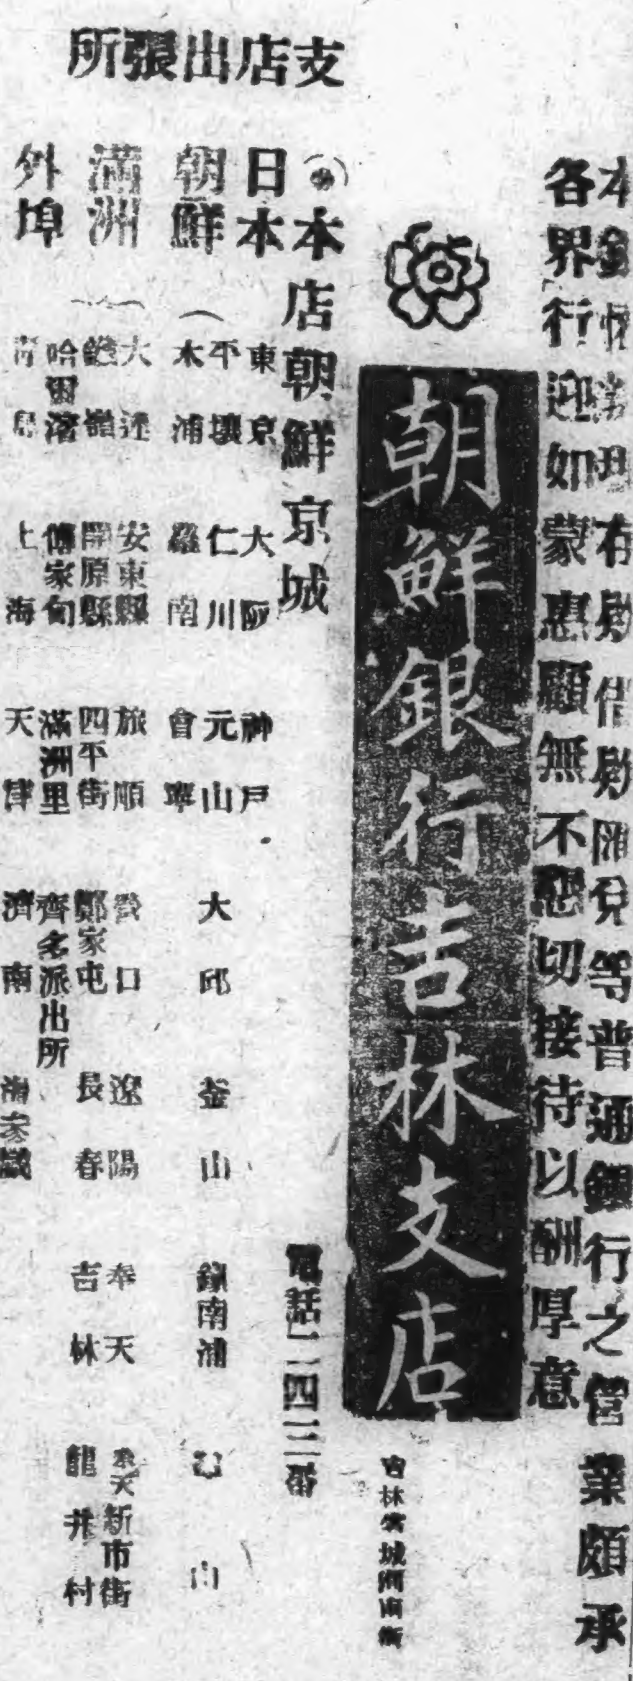 本銀行辦理存款借款匯兌等普通銀行之營業頗承
各界行迎如蒙惠顧無不懇切接待以酬厚意
朝鮮銀行吉林支店
吉林省城
本店朝鮮京城
電話二四二番
支店出張所
日本
東京 大阪 神戶
朝鮮
平壤 仁川 元山 大邱 釜山 鎮南浦
木浦 羅南 會寧
滿洲
大連 安東縣 旅順 營口 遼陽 奉天 奉天新市街
鐵嶺 開原縣 四平街 鄭家屯 長春 吉林 龍井村
哈爾濱 傅家甸 滿洲里 齊齊派出所
外埠
青島 上海 天津 濟南